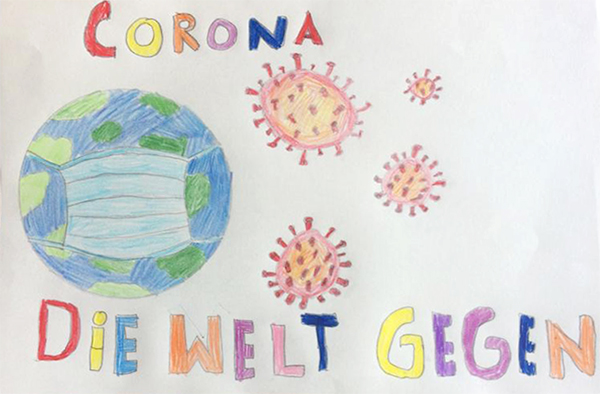 CORONA
DiE WELT GEGEN